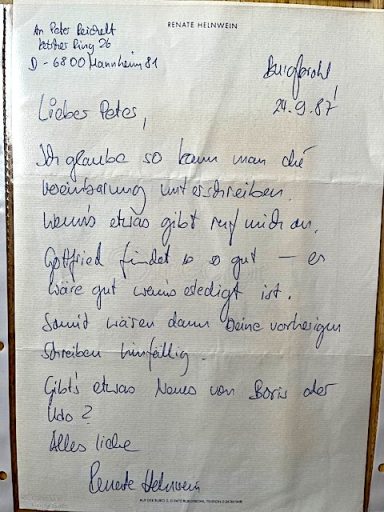 RENATE HELNWEIN
An Peter Reichelt
Ring 26
D - 6800 Mannheim 81
Burgbrohl,
24.9.87
Lieber Peter,
Ich glaube so kann man die
Vereinbarung unterschreiben.
Wenns etwas gibt ruf mich an.
Gottfried findet es so gut — es
wäre gut wenns erledigt ist.
Somit wären dann Deine vorherigen
Schreiben hinfällig.
Gibt's etwas Neues von Boris oder
Udo?
Alles liebe
Renate Helnwein